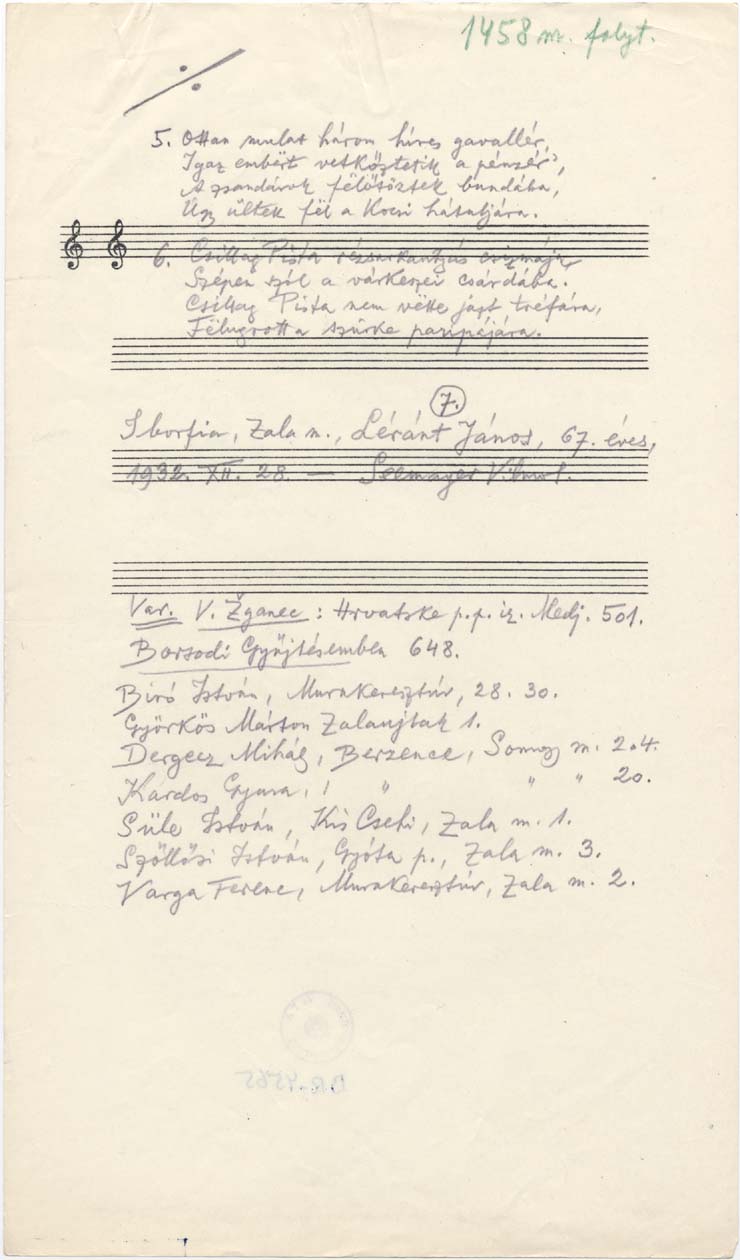 1458 sz. folyt.
5. Ottan mulat három híres gavallér,
Igaz embërt vetkőztetik a pénzér',
A zsandárok fëlőtöztek bundába,
Úgy űltek fël a kocsi hátuljára.
6. Csillag Pista rézsarkantyús csizmája
Szépen szól a várkeszei csárdába.
Csillag Pista nem vëtte jászt tréfára,
Fëlugrott a szürke paripájára.
7.
Iborfia, Zala m., Léránt János, 67. éves,
1932. XII. 28. — Seemayer Vilmos.
Var. V. Žganec : Hrvatske p.p. iz. Medj. 501.
Borsodi Gyűjtésemben 648.
Biró István, Murakeresztúr, 28. 30.
Györkös Márton Zalaujlak 1.
Dergecz Mihály, Berzence, Somogy m. 2.4.
Kardos Gyura, " " " 20.
Süle István, Kis Csehi, Zala m. 1.
Szöllősi István, Gyóta p., Zala m. 3.
Varga Ferenc, Murakeresztúr, Zala m. 2.